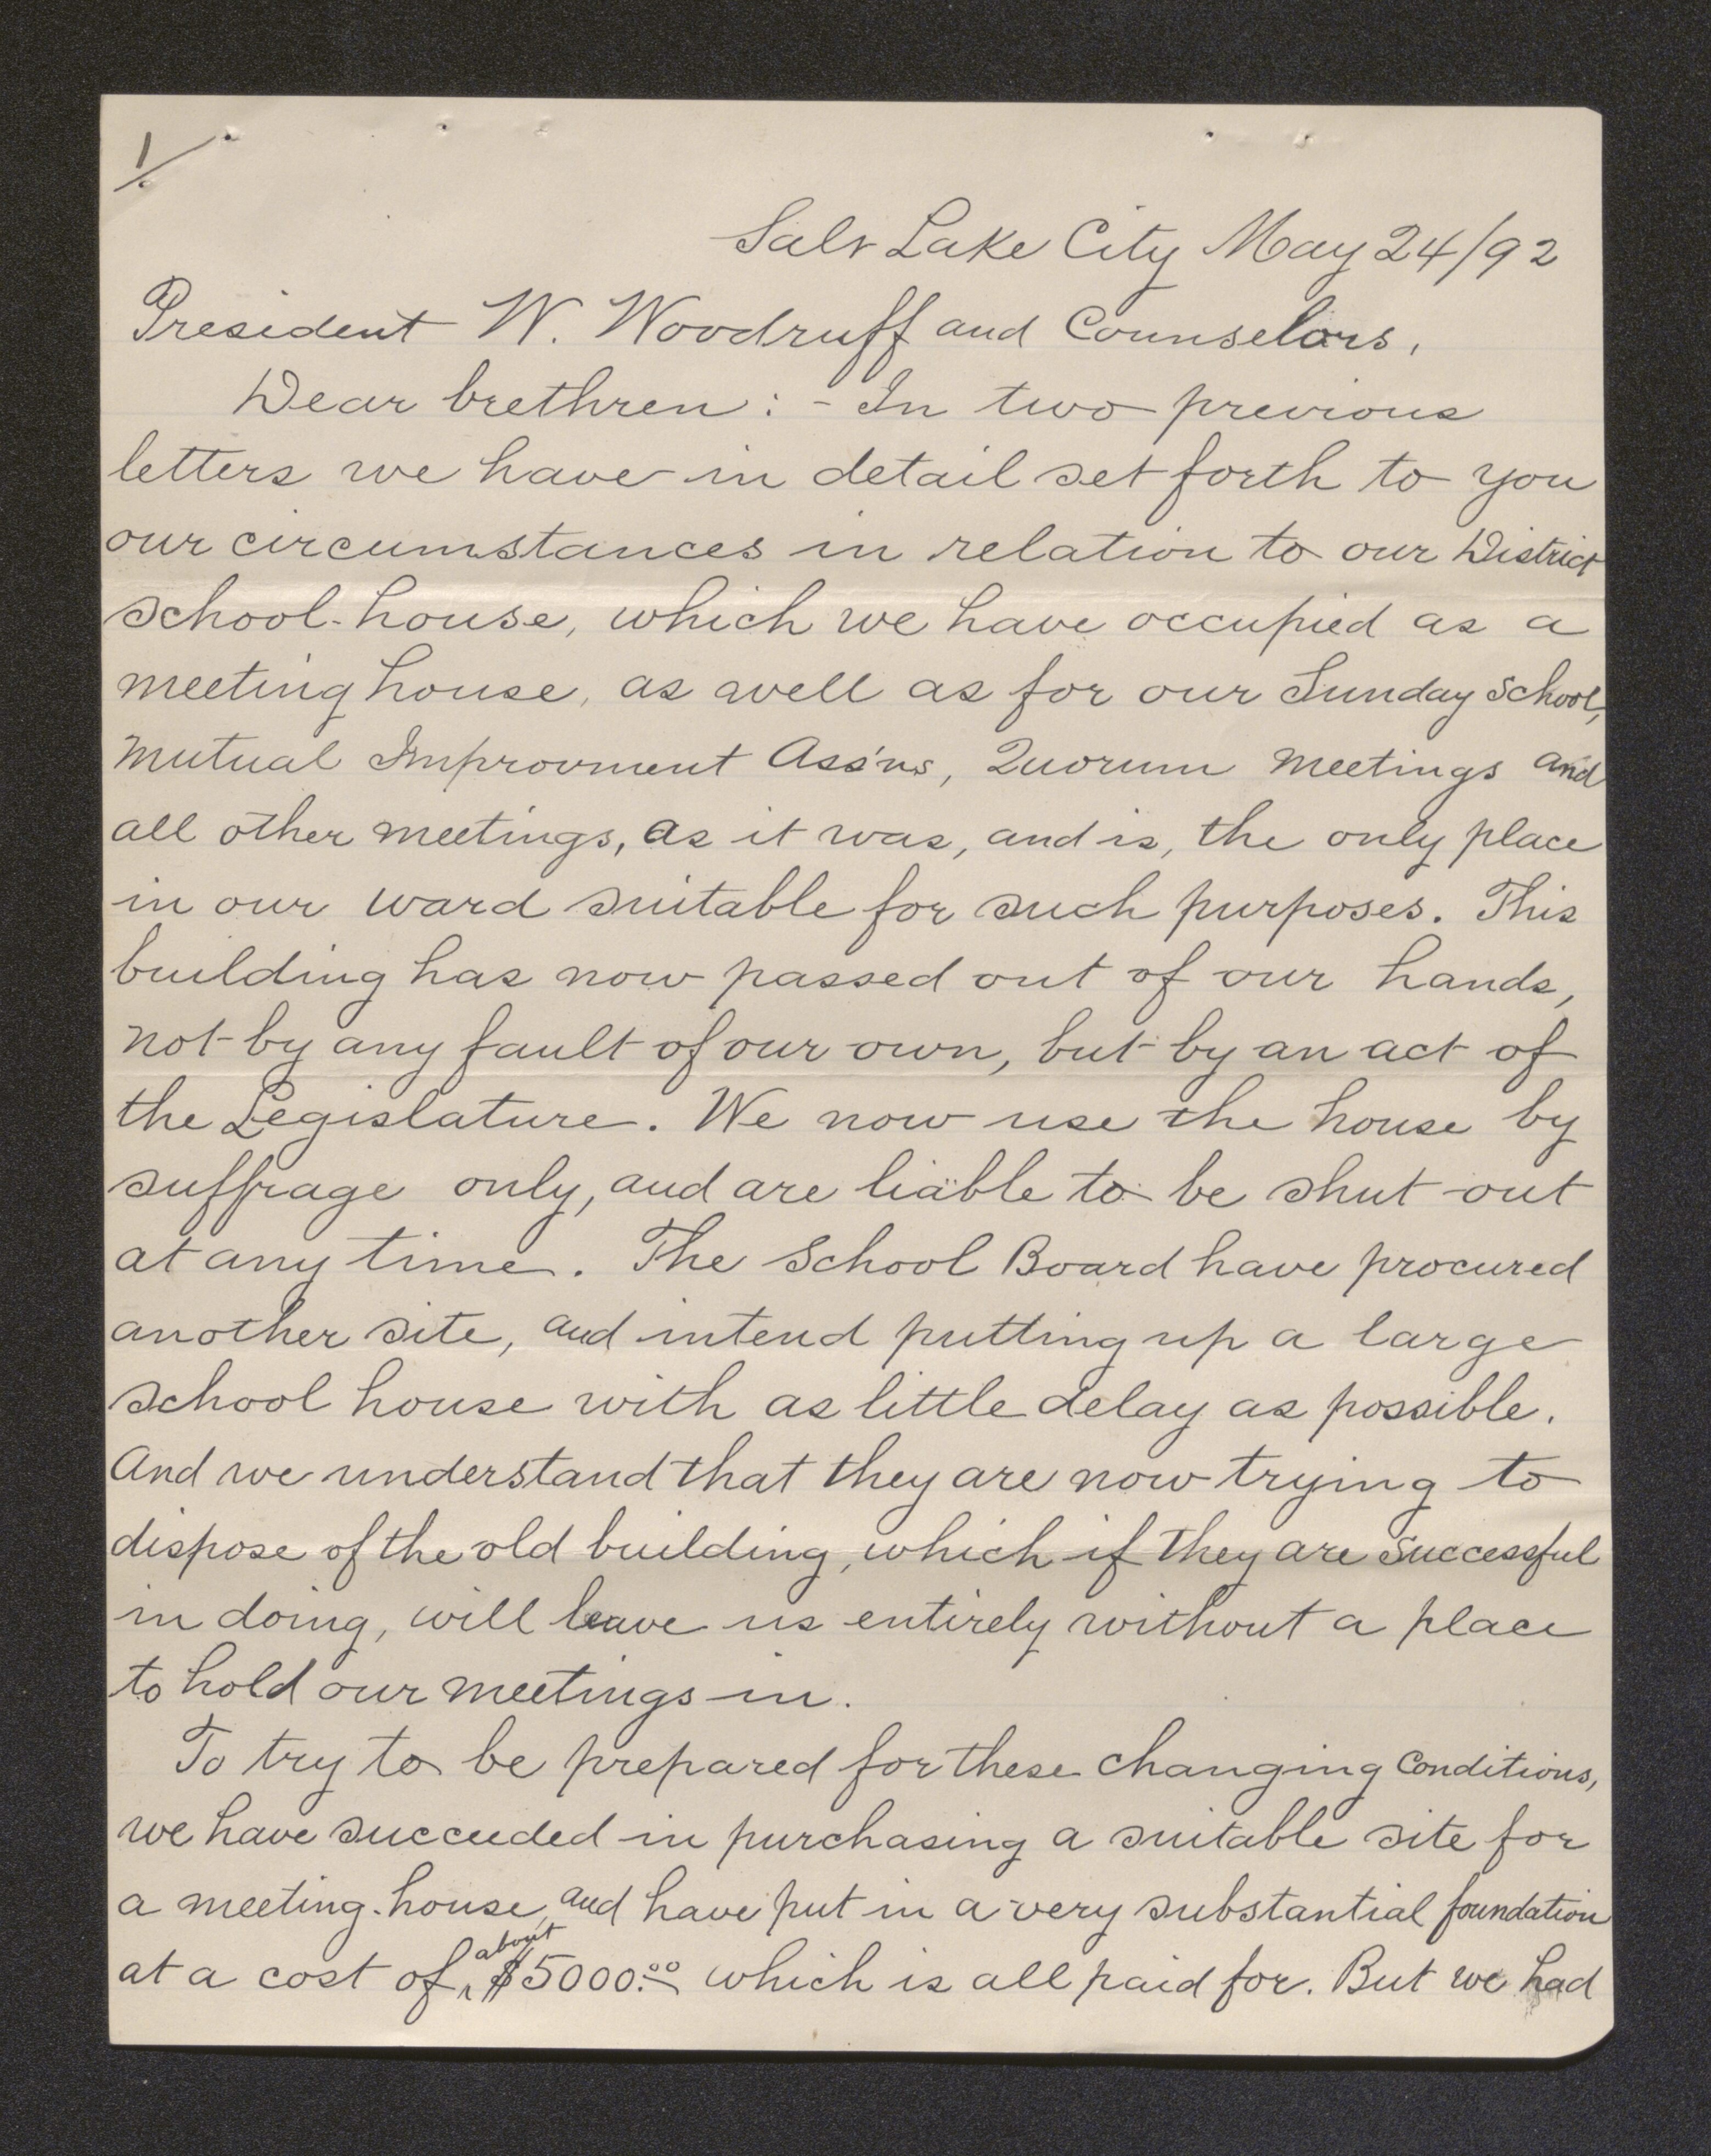 1/.
Salt Lake City May 24/92
President W. Woodruff and Counselors,
Dear brethren: - In two previous
letters we have in detail set forth to you
our circumstances in relation to our District
school-house, which we have occupied as a
meeting house, as well as for our Sunday School,
Mutual Improvment Ass'ns, Quorum meetings and
all other meetings, as it was, and is, the only place
in our ward suitable for such purposes. This
building has now passed out of our hands,
not by any fault of our own, but by an act of
the Legislature. We now use the house by
suffrage only, and are liable to be shut out
at any time. The School Board have procured
another site, and intend putting up a large
school house with as little delay as possible.
And we understand that they are now trying to
dispose of the old building, which if they are successful
in doing, will leave us entirely without a place
to hold our meetings in.
To try to be prepared for these changing conditions,
we have succeeded in purchasing a suitable site for
a meeting-house, and have put in a very substantial foundation
about
at a cost of $5000.00 which is all paid for. But we had